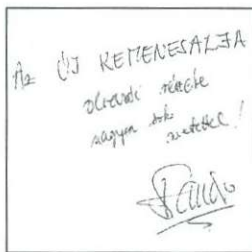 Az ÚJ KEMENESALJA
olvasói részére
nagyon sok
szeretettel!